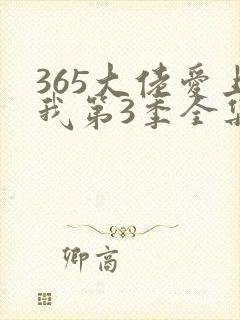 365大佬爱上
我第3季全集
卿高